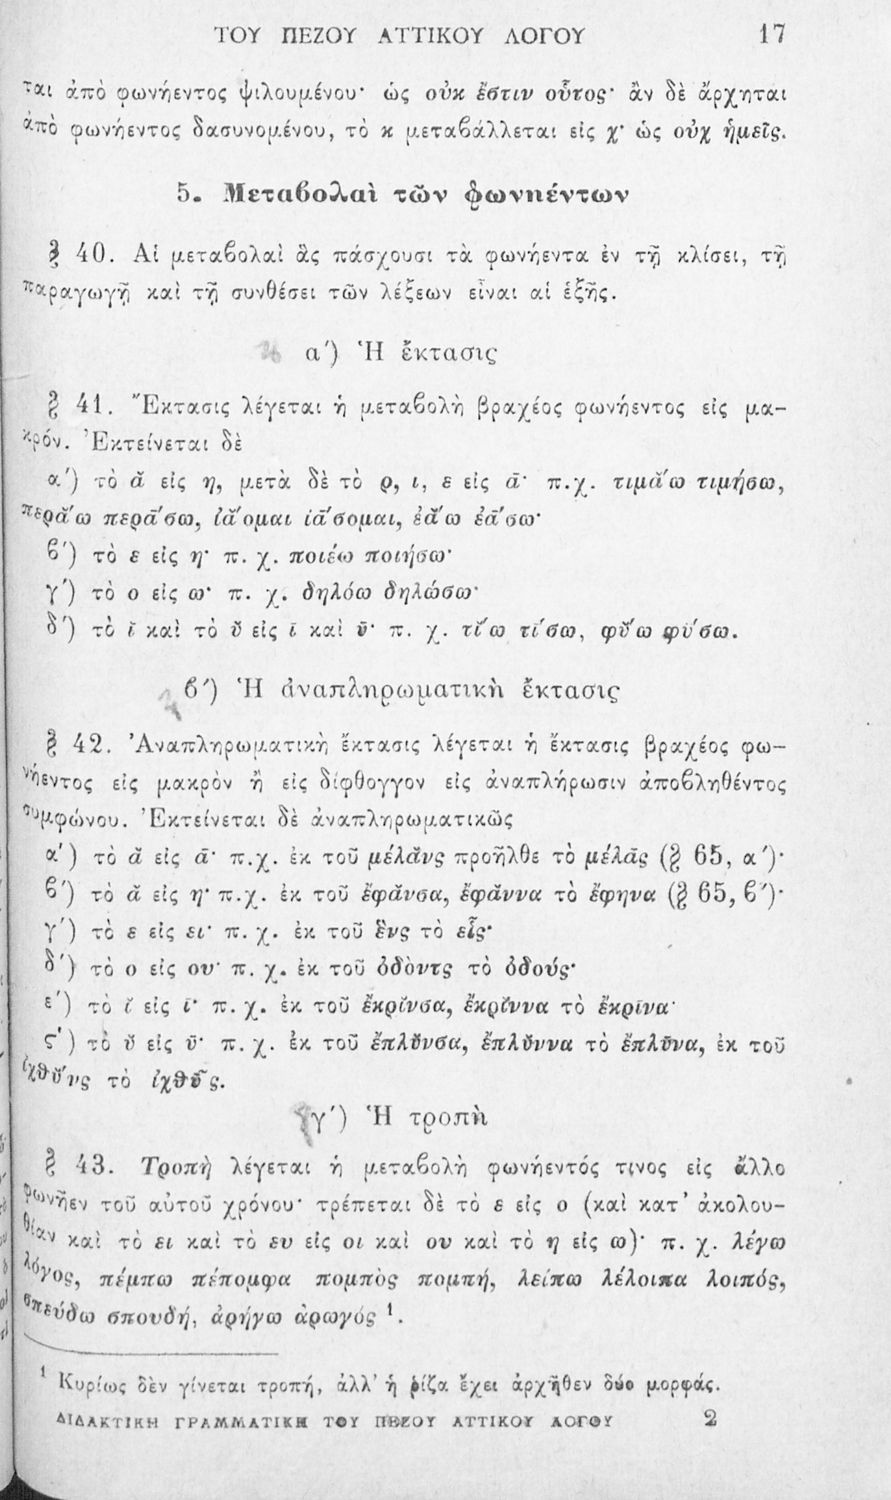 ΤΟΥ ΠΕΖΟΥ ΑΤΤΙΚΟΥ ΛΟΓΟΥ 17
ται ἀπὸ φωνήεντος ψιλουμένου· ὡς οὐκ ἔστιν οὗτος· ἂν δὲ ἄρχηται
ἀπὸ φωνήεντος δασυνομένου, τὸ κ μεταβάλλεται εἰς χ· ὡς οὐχ ἡμεῖς.
5. Μεταβολαὶ τῶν φωνηέντων
§ 40. Αἱ μεταβολαὶ ἃς πάσχουσι τὰ φωνήεντα ἐν τῇ κλίσει, τῇ
παραγωγῇ καὶ τῇ συνθέσει τῶν λέξεων εἶναι αἱ ἑξῆς.
α΄) Ἡ ἔκτασις
§ 41. Ἔκτασις λέγεται ἡ μεταβολὴ βραχέος φωνήεντος εἰς μα-
κρόν. Ἐκτείνεται δὲ
α΄) τὸ ᾰ εἰς η, μετὰ δὲ τὸ ρ, ι, ε εἰς ᾱ· π.χ. τιμᾰ́ω τιμήσω,
περᾰ́ω περᾱ́σω, ἰᾰ́ομαι ἰᾱ́σομαι, ἐᾰ́ω ἐᾱ́σω·
β΄) τὸ ε εἰς η· π. χ. ποιέω ποιήσω·
γ΄) τὸ ο εἰς ω· π. χ. δηλόω δηλώσω·
δ΄) τὸ ῐ καὶ τὸ ῠ εἰς ῑ καὶ ῡ· π. χ. τῐ́ω τῑ́σω, φῠ́ω φῡ́σω.
β΄) Ἡ ἀναπληρωματικὴ ἔκτασις
§ 42. Ἀναπληρωματικὴ ἔκτασις λέγεται ἡ ἔκτασις βραχέος φω-
νήεντος εἰς μακρὸν ἢ εἰς δίφθογγον εἰς ἀναπλήρωσιν ἀποβληθέντος
συμφώνου. Ἐκτείνεται δὲ ἀναπληρωματικῶς
α΄) τὸ ᾰ εἰς ᾱ· π.χ. ἐκ τοῦ μέλᾰνς προῆλθε τὸ μέλᾱς (§ 65, α΄)·
β΄) τὸ ᾰ εἰς η· π.χ. ἐκ τοῦ ἔφᾰνσα, ἔφᾰννα τὸ ἔφηνα (§ 65, β΄)·
γ΄) τὸ ε εἰς ει· π. χ. ἐκ τοῦ ἕνς τὸ εἷς·
δ΄) τὸ ο εἰς ου· π. χ. ἐκ τοῦ ὀδὸντς τὸ ὀδούς·
ε΄) τὸ ῐ εἰς ῑ· π. χ. ἐκ τοῦ ἔκρῐνσα, ἔκρῐννα τὸ ἔκρῑνα·
ϛ΄) τὸ ῠ εἰς ῡ· π. χ. ἐκ τοῦ ἔπλῠνσα, ἔπλῠννα τὸ ἔπλῡνα, ἐκ τοῦ
ἰχθῠ́νς τὸ ἰχθῡ͂ς.
γ΄) Ἡ τροπὴ
§ 43. Τροπὴ λέγεται ἡ μεταβολὴ φωνήεντός τινος εἰς ἄλλο
φωνῆεν τοῦ αὐτοῦ χρόνου· τρέπεται δὲ τὸ ε εἰς ο (καὶ κατ᾽ ἀκολου-
θίαν καὶ τὸ ει καὶ τὸ ευ εἰς οι καὶ ου καὶ τὸ η εἰς ω)· π. χ. λέγω
λόγος, πέμπω πέπομφα πομπὸς πομπή, λείπω λέλοιπα λοιπός,
σπεύδω σπουδή, ἀρήγω ἀρωγός ¹.
¹ Κυρίως δὲν γίνεται τροπή, ἀλλ᾽ ἡ ῥίζα ἔχει ἀρχῆθεν δύο μορφάς.
ΔΙΔΑΚΤΙΚΗ ΓΡΑΜΜΑΤΙΚΗ ΤΟΥ ΠΕΖΟΥ ΑΤΤΙΚΟΥ ΛΟΓΟΥ 2